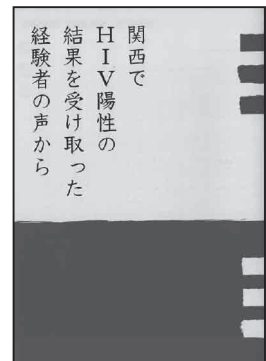 関西で
HIV陽性の
結果を受け取った
経験者の声から